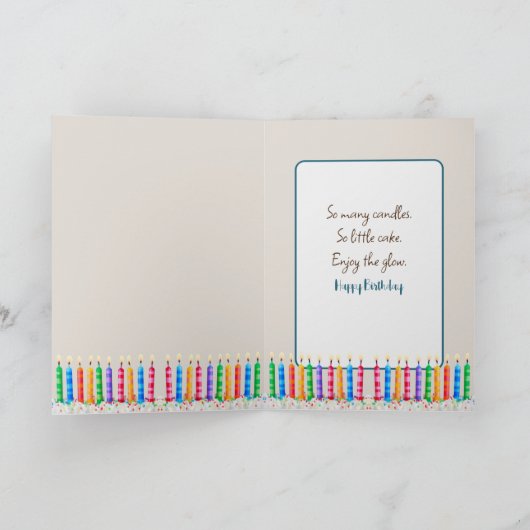 So many candles.
So little cake.
Enjoy the glow.
Happy Birthday